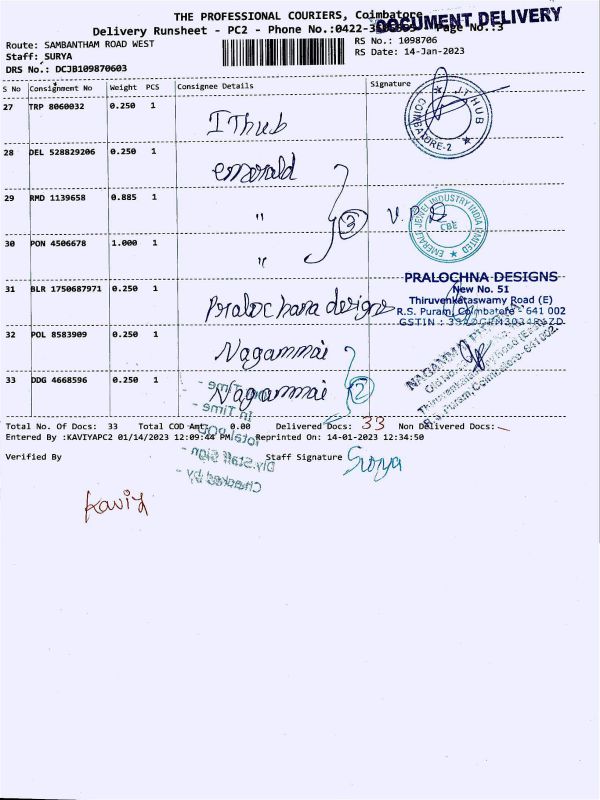 THE PROFESSIONAL COURIERS, Coimbatore
DOCUMENT DELIVERY
Delivery Runsheet - PC2 - Phone No.:0422- Page No.:3
Route: SAMBANTHAM ROAD WEST
RS No.: 1098706
Staff: SURYA
RS Date: 14-Jan-2023
DRS No.: DCJB109870603
S No Consignment No Weight PCS Consignee Details Signature
27 TRP 8060032 0.250 1
IThub
IT HUB
COIMBATORE-2
28 DEL 528829206 0.250 1
emerald
29 RMD 1139658 0.885 1
"
3
V.P.
EMERALD JEWEL INDUSTRY INDIA LIMITED
CBE
30 PON 4506678 1.000 1
"
31 BLR 1750687971 0.250 1
Pralochana designs
PRALOCHNA DESIGNS
New No. 51
Thiruvenkataswamy Road (E)
R.S. Puram, Coimbatore - 641 002
GSTIN :
32 POL 8583909 0.250 1
Nagammai
33 DDG 4668596 0.250 1
Nagammai
2
R.S. Puram, Coimbatore-641 002
Time
In Time -
Total POD
Div.Staff Sign -
Checked by -
Total No. Of Docs: 33 Total COD Amt: 0.00 Delivered Docs: 33 Non Delivered Docs: -
Entered By :KAVIYAPC2 01/14/2023 12:09:44 PM Reprinted On: 14-01-2023 12:34:50
Verified By Staff Signature Surya
Kaviya